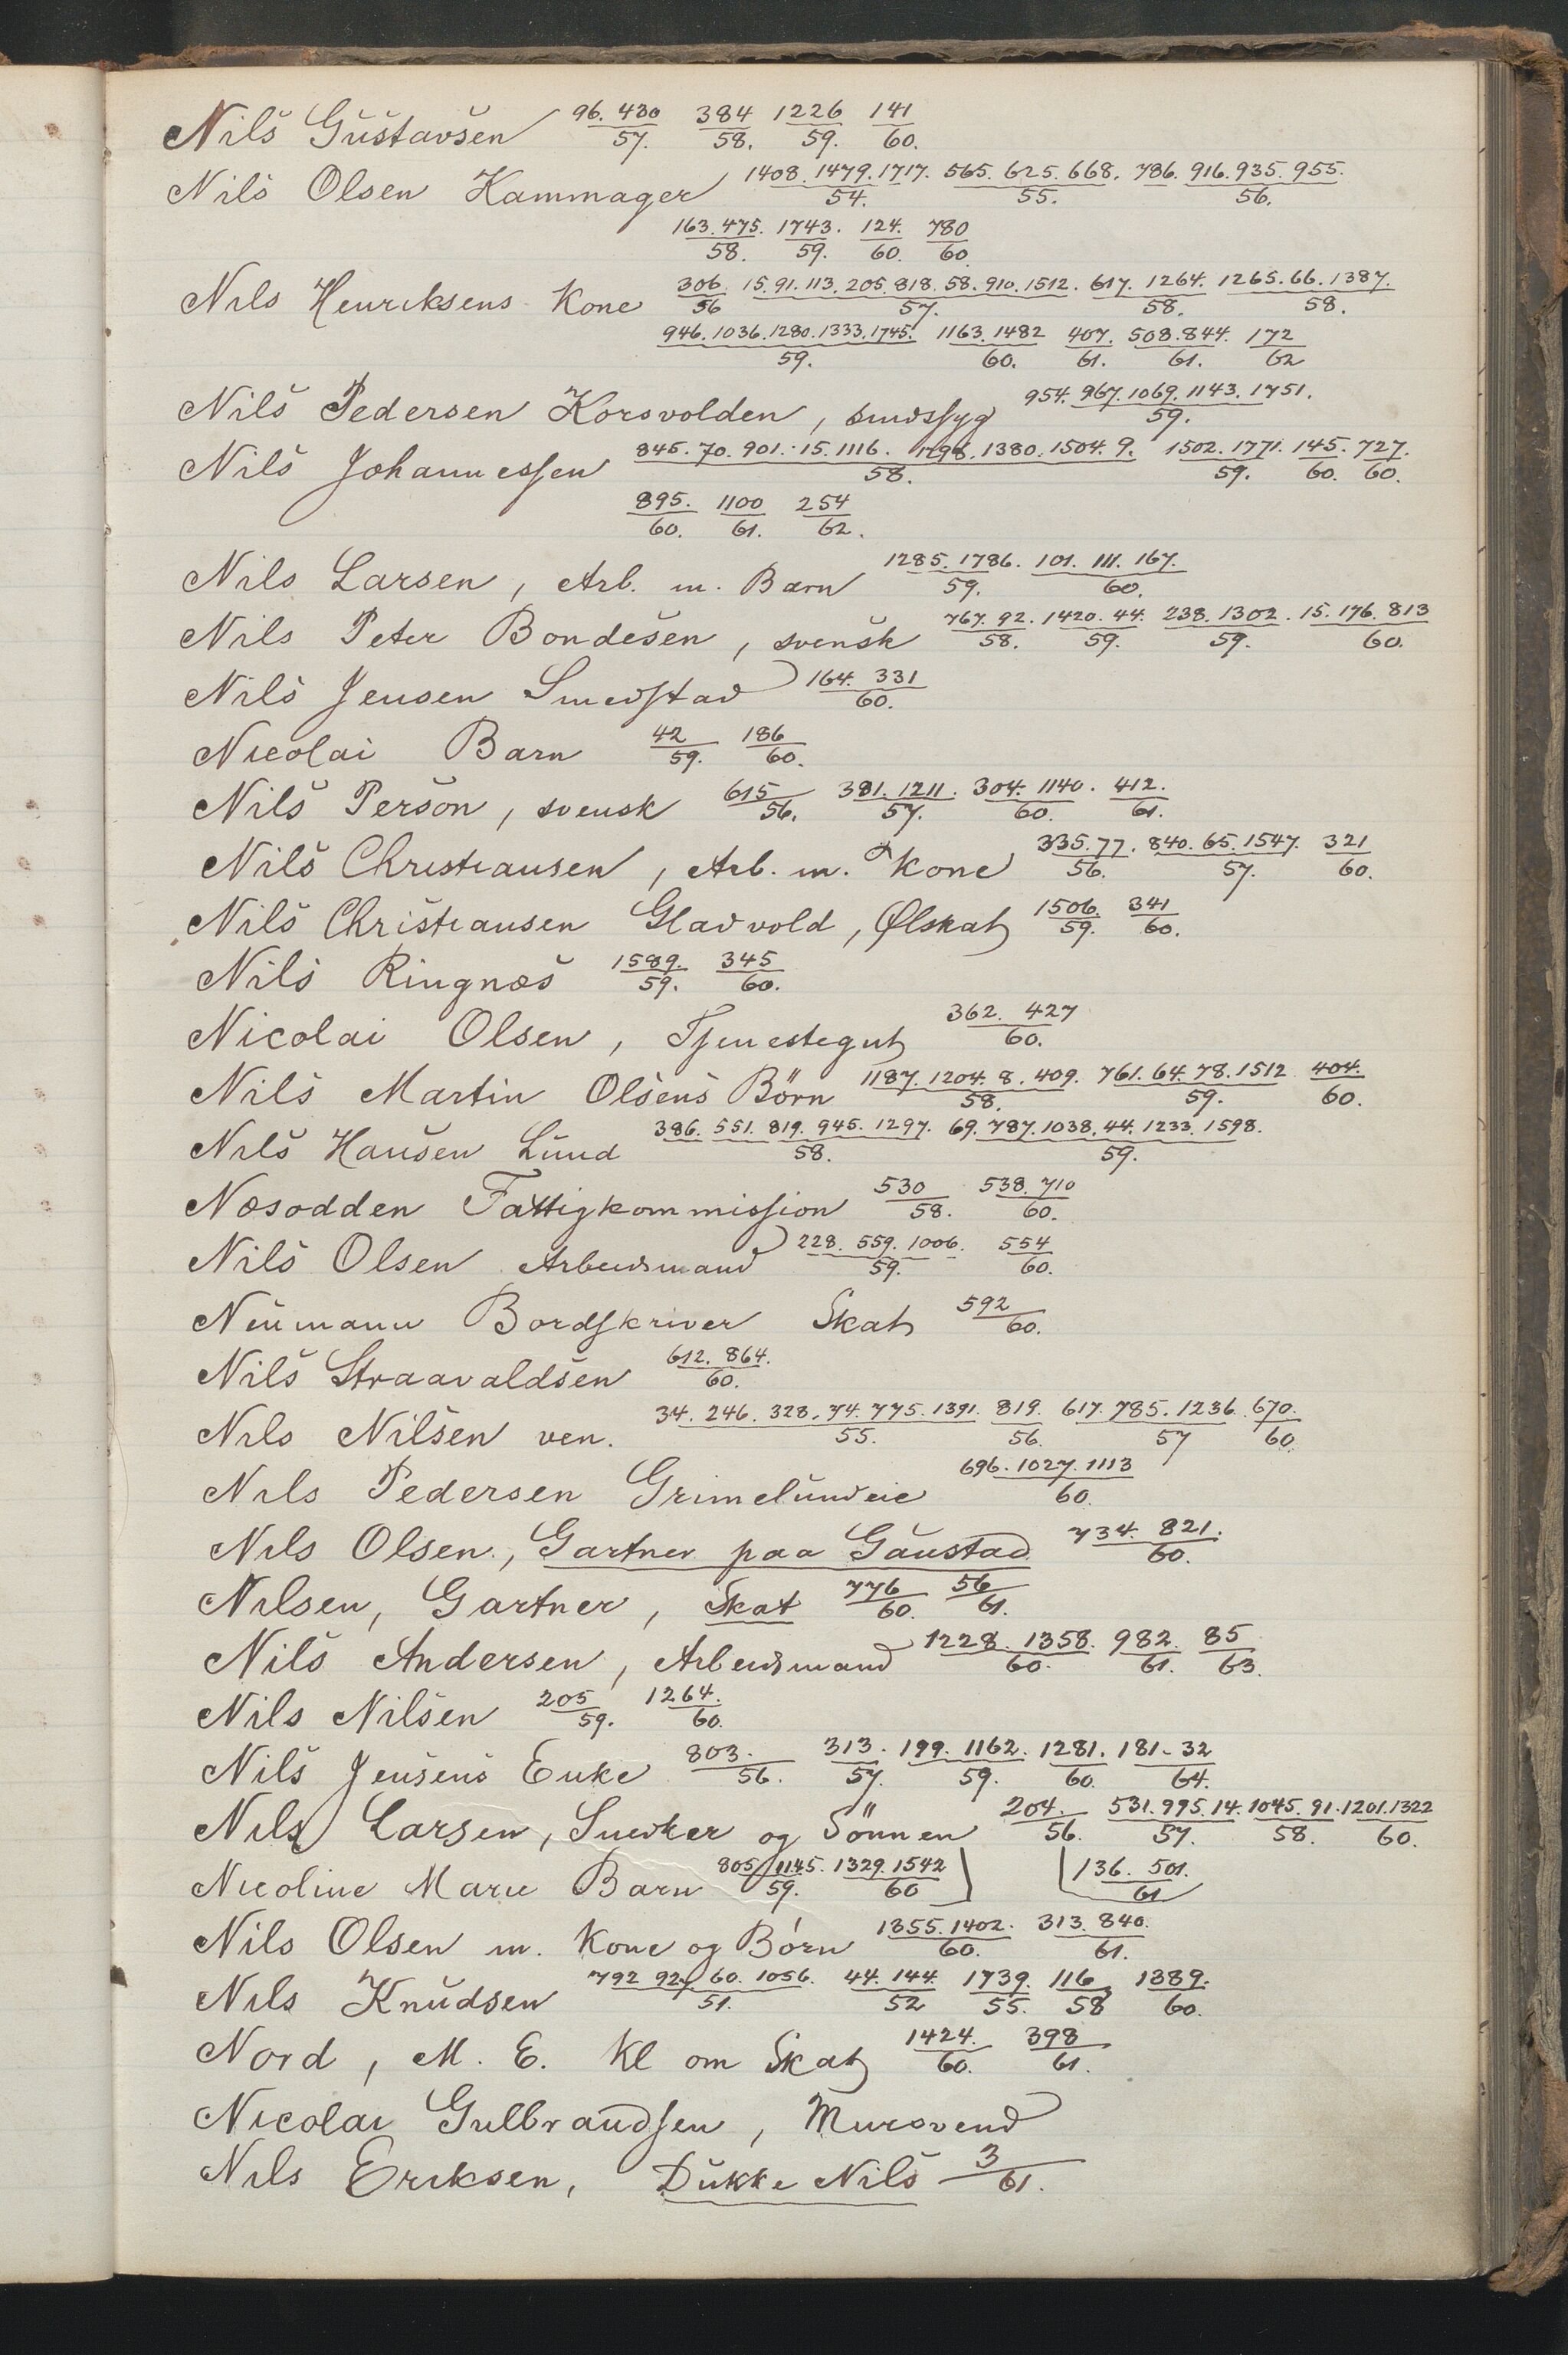 Nils Gustavsen 96. 430/57. 384/58. 1226/59. 141/60.
Nils Olsen Kammager 1408. 1479. 1717./54. 565. 625. 668./55. 786. 916. 935. 955./56.
163. 475./58. 1743./59. 124./60. 780/60
Nils Henriksens Kone 306/56 15. 91. 113. 205. 818. 58. 910. 1512./57. 617. 1264./58. 1265. 66. 1387./58.
946. 1036. 1280. 1333. 1745./59. 1163. 1482/60. 407./61. 508. 844./61. 172/62
Nils Pedersen Korsvolden, sindssyg 954. 967. 1069. 1143. 1751./59.
Nils Johannessen 845. 70. 901. 15. 1116. 1298. 1380. 1504. 9./58. 1502. 1771./59. 145./60. 727./60.
895./60. 1100/61. 254/62.
Nils Larsen, Arb. m. Barn 1285. 1786./59. 101. 111. 167./60.
Nils Peter Bondesen, svensk 767. 92./58. 1420. 44./59. 238. 1302./59. 15. 176. 813/60.
Nils Jensen Smedstad 164. 331/60.
Nicolai Barn 42/59. 186/60.
Nils Person, svensk 615/56. 381. 1211./57. 304. 1140./60. 412./61.
Nils Christiansen, Arb. m. Kone 335. 77./56. 840. 65. 1547./57. 321/60.
Nils Christiansen Gladvold, Ølskat 1506./59. 341/60.
Nils Ringnæs 1589./59. 345/60.
Nicolai Olsen, Tjenestegut 362. 427/60.
Nils Martin Olsens Börn 1187. 1204. 8. 409./58. 761. 64. 78. 1512/59. 404./60.
Nils Hansen Lund 386. 551. 819. 945. 1297./58. 69. 787. 1038. 44. 1233. 1598./59.
Næsodden Fattigkommission 530/58. 538. 710/60.
Nils Olsen Arbeidsmand 228. 559. 1006./59. 554/60.
Neumann Bordskriver Skat 592/60.
Nils Straavaldsen 612. 864./60.
Nils Nilsen ven. 34. 246. 328. 74. 775. 1391./55. 819./56. 617. 785. 1236./57 670./60
Nils Pedersen Grimelundeie 696. 1027. 1113/60.
Nils Olsen, Gartner paa Gaustad 734. 821./60.
Nilsen, Gartner, Skat 776/60. 56/61.
Nils Andersen, Arbeidsmand 1228. 1358./60. 982./61. 85/63.
Nils Nilsen 205/59. 1264./60.
Nils Jensens Enke 803./56. 313./57. 199. 1162./59. 1281./60. 181. 32/64.
Nils Larsen, Snedker og Sönnen 204./56. 531. 995. 14./57. 1045. 91./58. 1201. 1322/60.
Nicoline Marie Barn 805. 1145./59. 1329. 1542/60 136. 501./61
Nils Olsen m. Kone og Börn 1355. 1402./60. 313. 840./61.
Nils Knudsen 792 927 60. 1056./51. 44. 144./52 1739./55. 116/58 1389./60.
Nord, M. E. Kl om Skat 1424./60. 398/61.
Nicolai Gulbrandsen, Mursvend
Nils Eriksen, Dukke Nils 3/61.